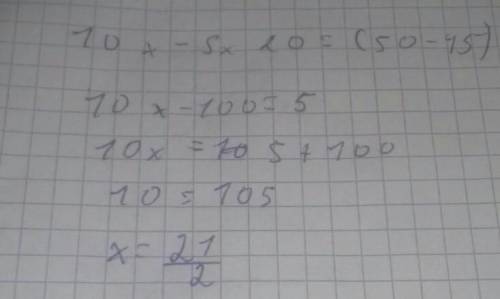 10 x - 5x 20 = (50-45)
10 x - 100 = 5
10x = 5 + 100
10 = 105
x = 21/2